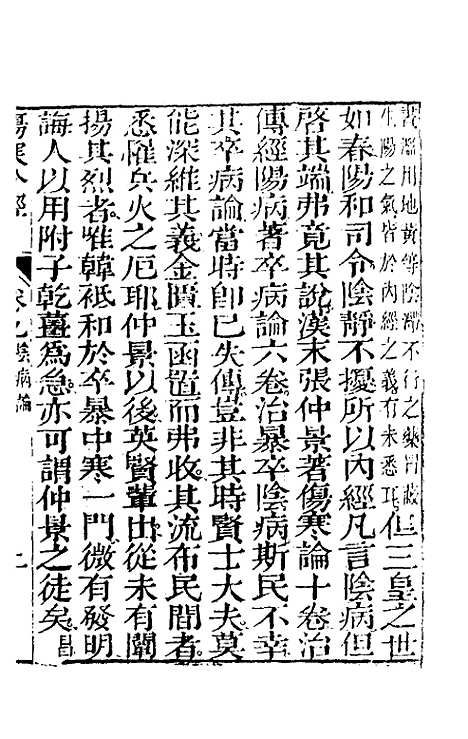 害濫用地黃等陰滯不行之藥冒蔽
生陽之氣皆於內經之義有未悉耳但三皇之世
如春陽和司令陰靜不擾所以內經凡言陰病但
啓其端弗竟其說漢末張仲景著傷寒論十卷治
傳經陽病著卒病論六卷治暴卒陰病斯民不幸
其卒病論當時卽已失傳豈非其時賢士大夫莫
能深維其義金匱玉函置而弗收其流布民間者
悉罹兵火之厄耶仲景以後英賢輩出從未有闡
揚其烈者惟韓祗和於卒暴中寒一門微有發明
誨人以用附子乾薑爲急亦可謂仲景之徒矣昌
傷寒
卷之
陰病論